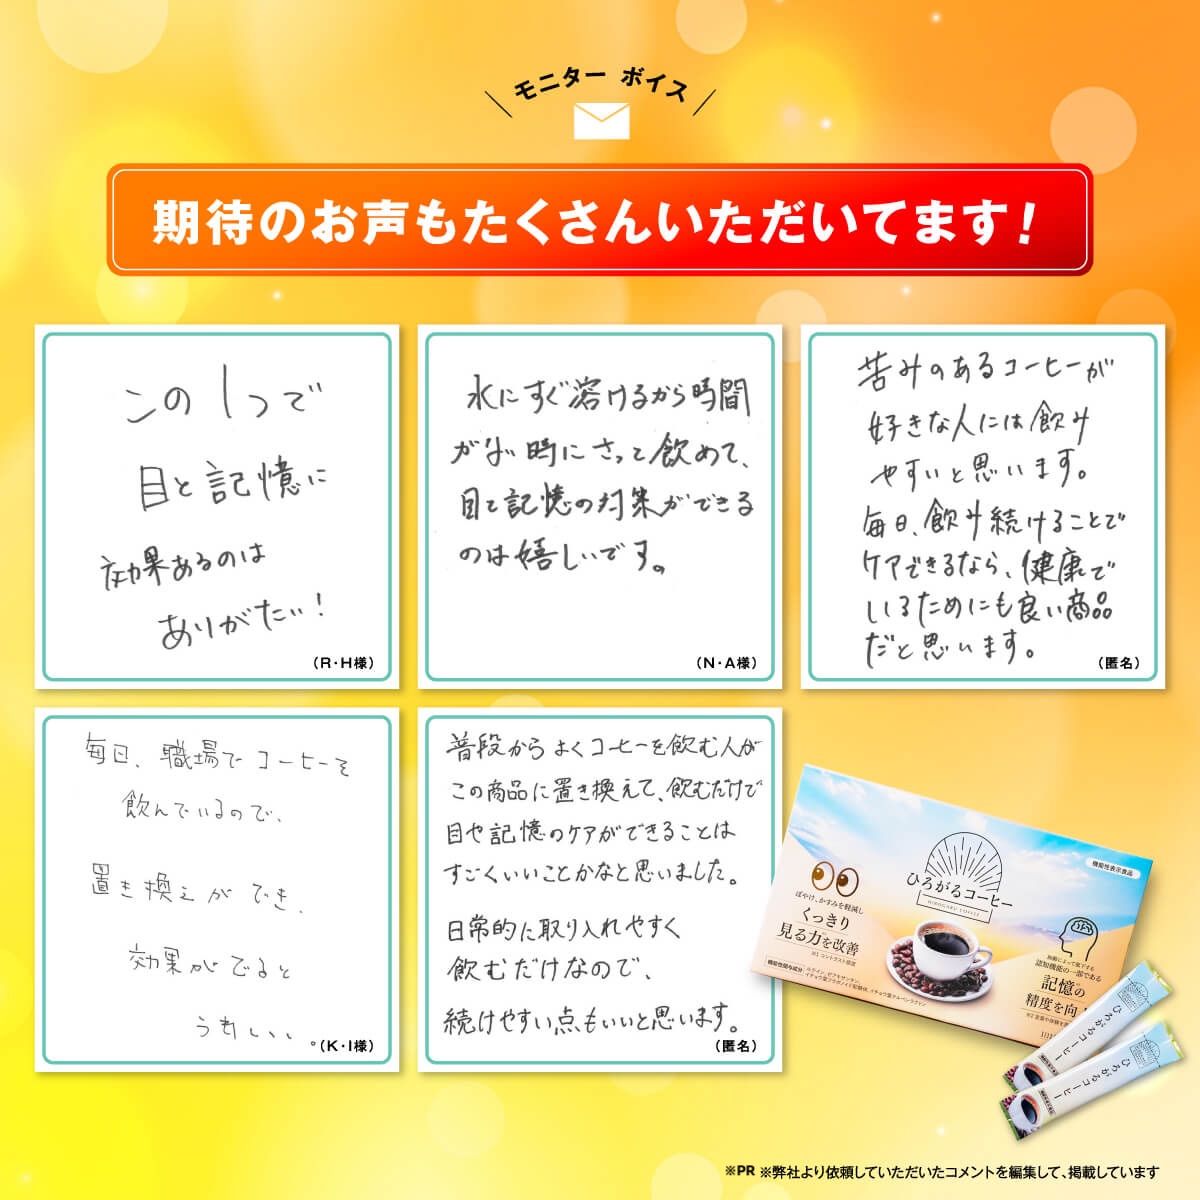 モニター ボイス
期待のお声もたくさんいただいてます!
この1つで
目と記憶に
効果あるのは
ありがたい!
(R・H様)
水にすぐ溶けるから時間
がない時にさっと飲めて、
目と記憶の対策ができる
のは嬉しいです。
(N・A様)
苦みのあるコーヒーが
好きな人には飲み
やすいと思います。
毎日、飲み続けることで
ケアできるなら、健康で
いるためにも良い商品
だと思います。
(匿名)
毎日、職場でコーヒーを
飲んでいるので、
置き換えができ、
効果がでると
うれしい。
(K・I様)
普段からよくコーヒーを飲む人が
この商品に置き換えて、飲むだけで
目や記憶のケアができることは
すごくいいことかなと思いました。
日常的に取り入れやすく
飲むだけなので、
続けやすい点もいいと思います。
(匿名)
機能性表示食品
ひろがるコーヒー
HIROGARU COFFEE
ぼやけ、かすみを軽減し
くっきり
見る力を改善
※1 コントラスト感度
加齢によって低下する
認知機能の一部である
記憶の
精度を向
機能性関与成分
ルテイン、ゼアキサンチン、
イチョウ葉フラボノイド配糖体、イチョウ葉テルペンラクトン
ひろがるコーヒー
ひろがるコーヒー
※PR ※弊社より依頼していただいたコメントを編集して、掲載しています